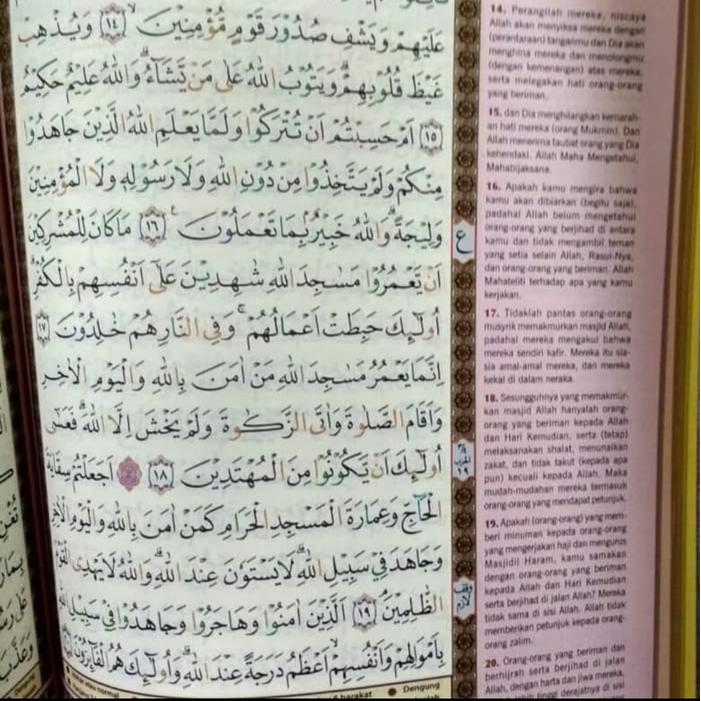 عَلَيْهِمْ وَيَشْفِ صُدُوْرَ قَوْمٍ مُّؤْمِنِيْنَ ۙ ﴿١٤﴾ وَيُذْهِبْ
غَيْظَ قُلُوْبِهِمْ ۗ وَيَتُوْبُ اللّٰهُ عَلٰى مَنْ يَّشَاۤءُ ۗ وَاللّٰهُ عَلِيْمٌ حَكِيْمٌ
﴿١٥﴾ اَمْ حَسِبْتُمْ اَنْ تُتْرَكُوْا وَلَمَّا يَعْلَمِ اللّٰهُ الَّذِيْنَ جَاهَدُوْا
مِنْكُمْ وَلَمْ يَتَّخِذُوْا مِنْ دُوْنِ اللّٰهِ وَلَا رَسُوْلِهٖ وَلَا الْمُؤْمِنِيْنَ
وَلِيْجَةً ۗ وَاللّٰهُ خَبِيْرٌۢ بِمَا تَعْمَلُوْنَ ࣖ ﴿١٦﴾ مَا كَانَ لِلْمُشْرِكِيْنَ
اَنْ يَّعْمُرُوْا مَسٰجِدَ اللّٰهِ شٰهِدِيْنَ عَلٰٓى اَنْفُسِهِمْ بِالْكُفْرِ ۗ
اُولٰۤىِٕكَ حَبِطَتْ اَعْمَالُهُمْ ۚ وَفِى النَّارِ هُمْ خٰلِدُوْنَ ﴿١٧﴾
اِنَّمَا يَعْمُرُ مَسٰجِدَ اللّٰهِ مَنْ اٰمَنَ بِاللّٰهِ وَالْيَوْمِ الْاٰخِرِ
وَاَقَامَ الصَّلٰوةَ وَاٰتَى الزَّكٰوةَ وَلَمْ يَخْشَ اِلَّا اللّٰهَ ۗ فَعَسٰٓى
اُولٰۤىِٕكَ اَنْ يَّكُوْنُوْا مِنَ الْمُهْتَدِيْنَ ﴿١٨﴾ ۞ اَجَعَلْتُمْ سِقَايَةَ
الْحَاۤجِّ وَعِمَارَةَ الْمَسْجِدِ الْحَرَامِ كَمَنْ اٰمَنَ بِاللّٰهِ وَالْيَوْمِ الْاٰخِرِ
وَجَاهَدَ فِيْ سَبِيْلِ اللّٰهِ ۗ لَا يَسْتَوٗنَ عِنْدَ اللّٰهِ ۗ وَاللّٰهُ لَا يَهْدِى الْقَوْمَ
الظّٰلِمِيْنَ ۘ ﴿١٩﴾ اَلَّذِيْنَ اٰمَنُوْا وَهَاجَرُوْا وَجَاهَدُوْا فِيْ سَبِيْلِ اللّٰهِ
بِاَمْوَالِهِمْ وَاَنْفُسِهِمْ ۙ اَعْظَمُ دَرَجَةً عِنْدَ اللّٰهِ ۗ وَاُولٰۤىِٕكَ هُمُ الْفَاۤىِٕزُوْنَ
ع
وقف لازم
14. Perangilah mereka, niscaya
Allah akan menyiksa mereka dengan
(perantaraan) tanganmu dan Dia akan
menghina mereka dan menolongmu
(dengan kemenangan) atas mereka,
serta melegakan hati orang-orang
yang beriman,
15. dan Dia menghilangkan kemarah-
an hati mereka (orang Mukmin). Dan
Allah menerima taubat orang yang Dia
kehendaki. Allah Maha Mengetahui,
Mahabijaksana.
16. Apakah kamu mengira bahwa
kamu akan dibiarkan (begitu saja),
padahal Allah belum mengetahui
orang-orang yang berjihad di antara
kamu dan tidak mengambil teman
yang setia selain Allah, Rasul-Nya,
dan orang-orang yang beriman. Allah
Mahateliti terhadap apa yang kamu
kerjakan.
17. Tidaklah pantas orang-orang
musyrik memakmurkan masjid Allah,
padahal mereka mengakui bahwa
mereka sendiri kafir. Mereka itu sia-
sia amal-amal mereka, dan mereka
kekal di dalam neraka.
18. Sesungguhnya yang memakmur-
kan masjid Allah hanyalah orang-
orang yang beriman kepada Allah
dan Hari Kemudian, serta (tetap)
melaksanakan shalat, menunaikan
zakat, dan tidak takut (kepada apa
pun) kecuali kepada Allah. Maka
mudah-mudahan mereka termasuk
orang-orang yang mendapat petunjuk.
19. Apakah (orang-orang) yang mem-
beri minuman kepada orang-orang
yang mengerjakan haji dan mengurus
Masjidil Haram, kamu samakan
dengan orang-orang yang beriman
kepada Allah dan Hari Kemudian
serta berjihad di jalan Allah? Mereka
tidak sama di sisi Allah. Allah tidak
memberikan petunjuk kepada orang-
orang zalim.
20. Orang-orang yang beriman dan
berhijrah serta berjihad di jalan
Allah, dengan harta dan jiwa mereka,
lebih tinggi derajatnya di sisi
normal
harakat
Dengung